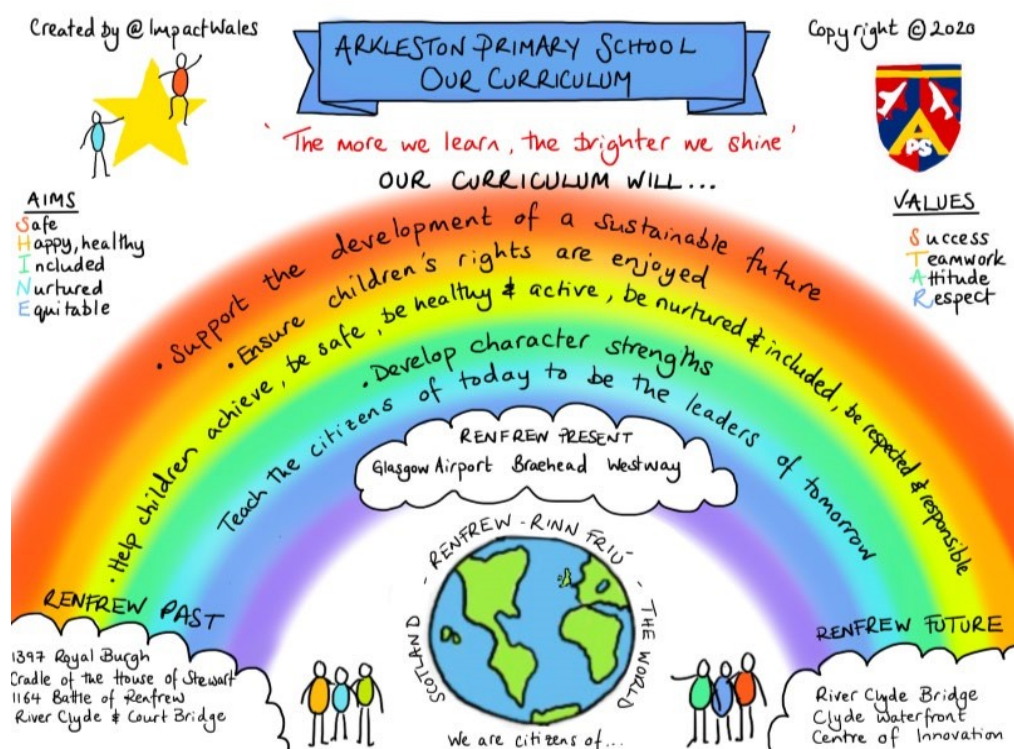 Created by @ImpactWales
ARKLESTON PRIMARY SCHOOL
OUR CURRICULUM
Copyright © 2020
'The more we learn, the brighter we shine'
OUR CURRICULUM WILL...
APS
AIMS
Safe
Happy, healthy
Included
Nurtured
Equitable
VALUES
Success
Teamwork
Attitude
Respect
• Support the development of a sustainable future
• Ensure children's rights are enjoyed
• Help children achieve, be safe, be healthy & active, be nurtured & included, be respected & responsible
• Develop character strengths
Teach the citizens of today to be the leaders of tomorrow
RENFREW PRESENT
Glasgow Airport Braehead Westway
RENFREW PAST
1397 Royal Burgh
Cradle of the House of Stewart
1164 Battle of Renfrew
River Clyde & Court Bridge
SCOTLAND
- RENFREW - RINN FRIÙ -
THE WORLD
We are citizens of...
RENFREW FUTURE
River Clyde Bridge
Clyde Waterfront
Centre of Innovation